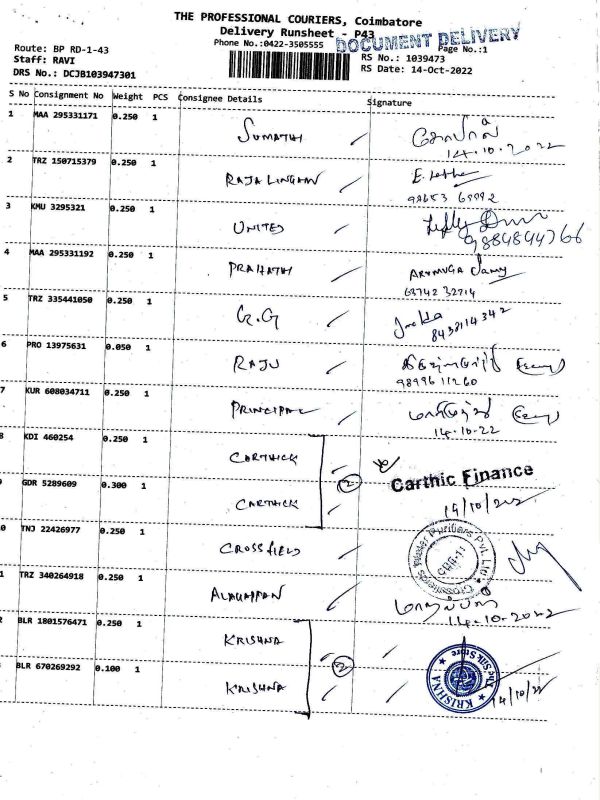 THE PROFESSIONAL COURIERS, Coimbatore
Delivery Runsheet - P43
Phone No.:0422-3505555
DOCUMENT DELIVERY
Page No.:1
Route: BP RD-1-43
Staff: RAVI
DRS No.: DCJB103947301
RS No.: 1039473
RS Date: 14-Oct-2022
S No Consignment No Weight PCS Consignee Details Signature
1 MAA 295331171 0.250 1 SUMATHI
14.10.2022
2 TRZ 150715379 0.250 1 RAJALINGAM
3 KMU 3295321 0.250 1 UNITED
9884844766
4 MAA 295331192 0.250 1 PRAHATHI ARUMUGA Samy
5 TRZ 335441050 0.250 1 G.G
8438114342
6 PRO 13975631 0.050 1 RAJU
9899611260
7 KUR 608034711 0.250 1 PRINCIPAL
14.10.22
8 KDI 460254 0.250 1 CARTHICK
2 Carthic Finance
GDR 5289609 0.300 1 CARTHICK
14/10/22
0 TNJ 22426977 0.250 1 CROSSFIELD
Water Purifiers Pvt. Ltd
CBE-11
1 TRZ 340264918 0.250 1 ALAGAPPAN
14.10.2022
BLR 1801576471 0.250 1 KRISHNA
2
BLR 670269292 0.100 1 KRISHNA
KRISHNA
The Silk Store
14/10/22